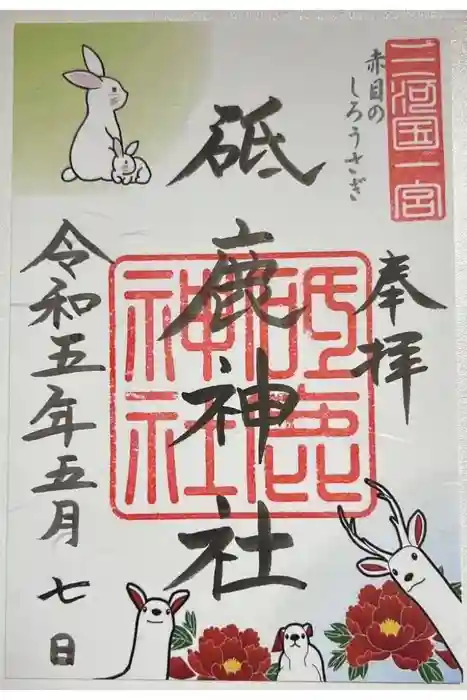 三河国一宮
赤目の
しろうさぎ
奉拝
砥鹿神社
砥鹿
神社
令和五年五月七日